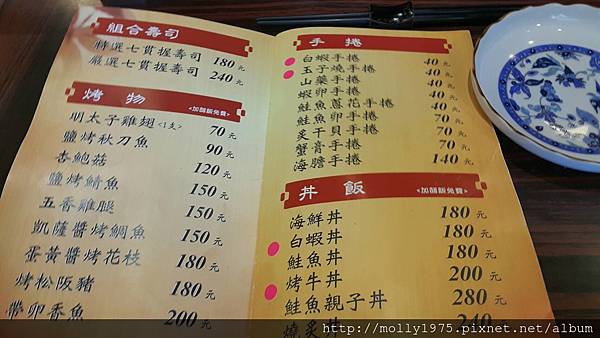 組合壽司
特選七貫握壽司 180元
嚴選七貫握壽司 240元
烤物 <加醋飯免費>
明太子雞翅<1支> 70元
鹽烤秋刀魚 90元
杏鮑菇 120元
鹽烤鯖魚 150元
五香雞腿 150元
凱薩醬烤鯛魚 150元
蛋黃醬烤花枝 180元
烤松阪豬 180元
帶卵香魚 200元
手捲
白蝦手捲 40元
玉子燒手捲 40元
山藥手捲 40元
蝦卵手捲 40元
鮭魚蔥花手捲 40元
鮭魚卵手捲 70元
炙干貝手捲 70元
蟹膏手捲 70元
海膽手捲 140元
丼飯 <加醋飯免費>
海鮮丼 180元
白蝦丼 180元
鮭魚丼 180元
烤牛丼 200元
鮭魚親子丼 280元
燒炙丼 240元
http://molly1975.pixnet.net/album